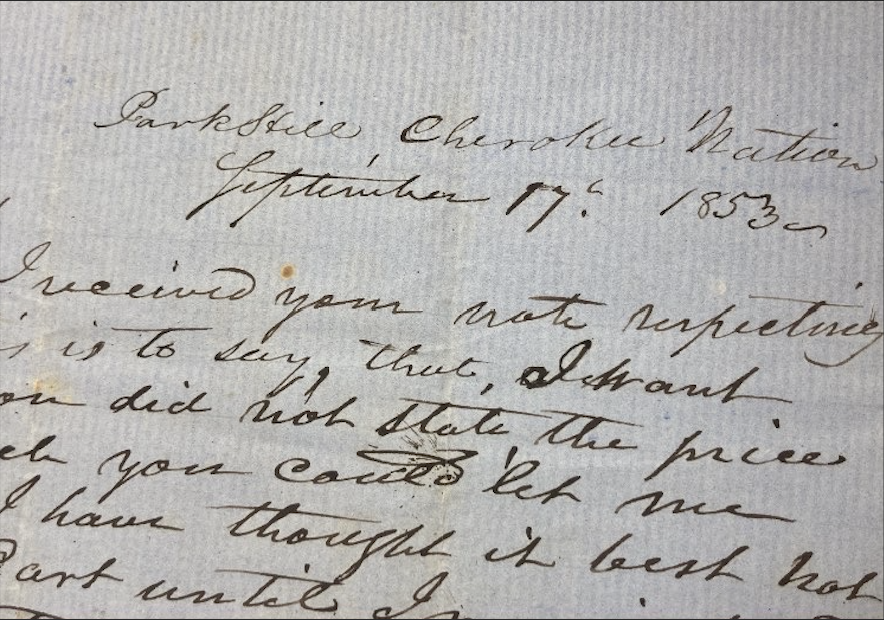 ParkHill Cherokee Nation
September 17. 1853
I received your note respecting
is to say, that, I want
did not state the price
you could let me
I have thought it best not
until I